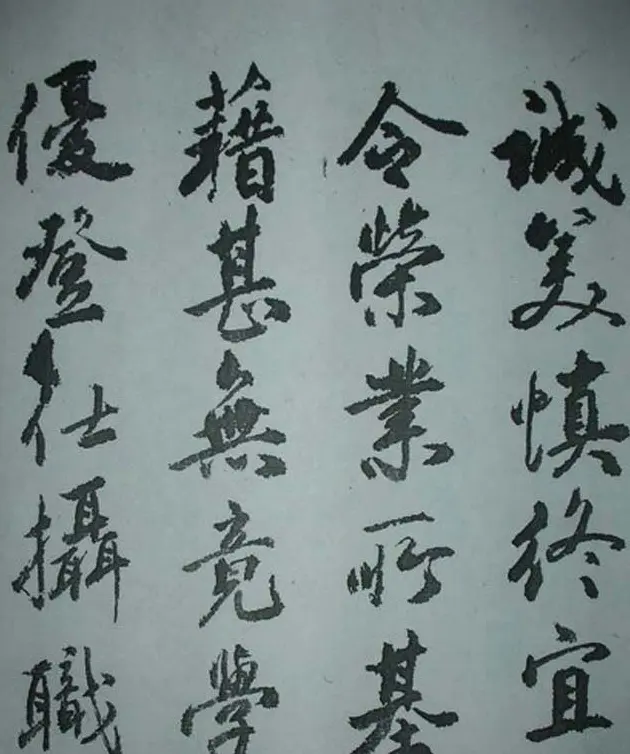 誠美慎終宜
令榮業所基
藉甚無竟學
優登仕攝職